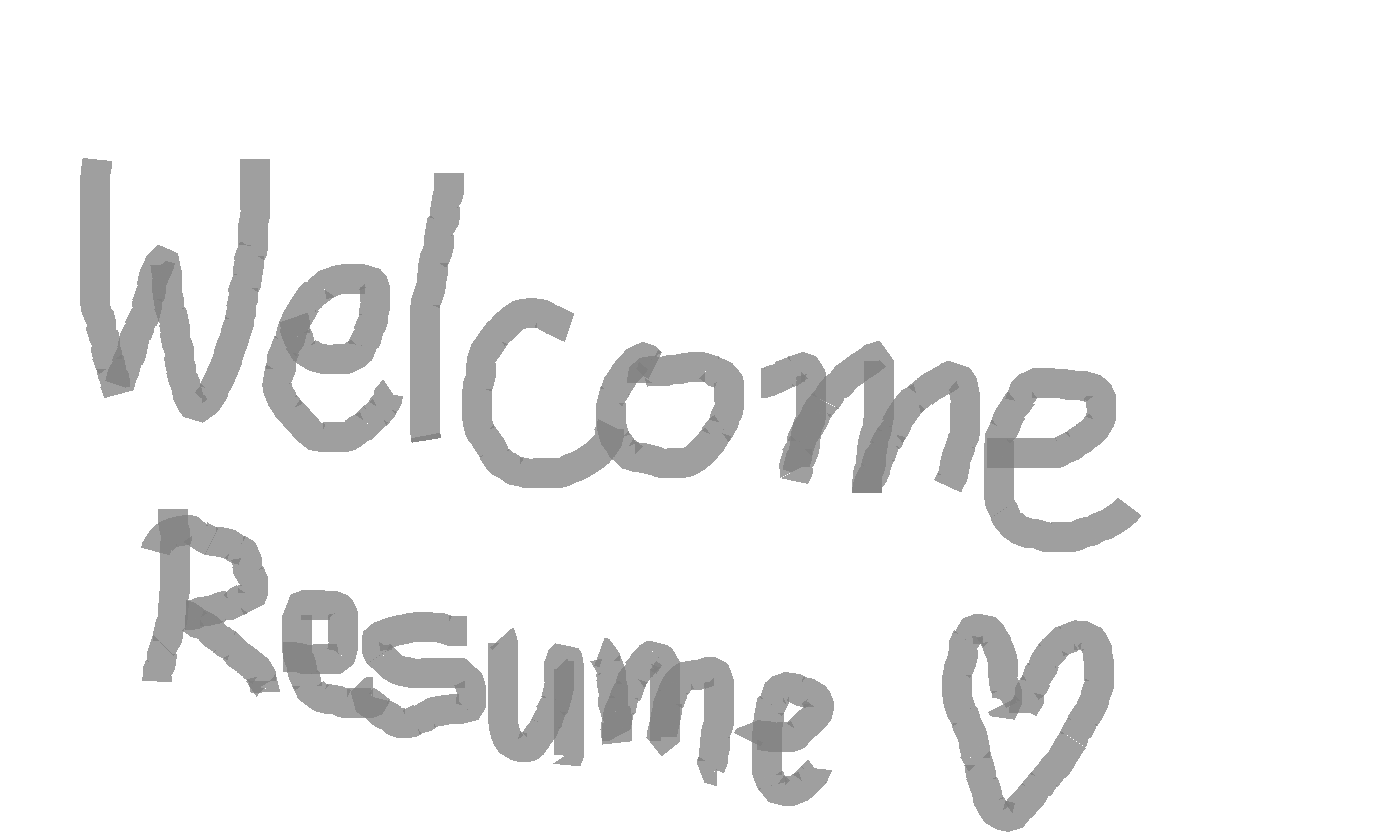 Welcome
Resume